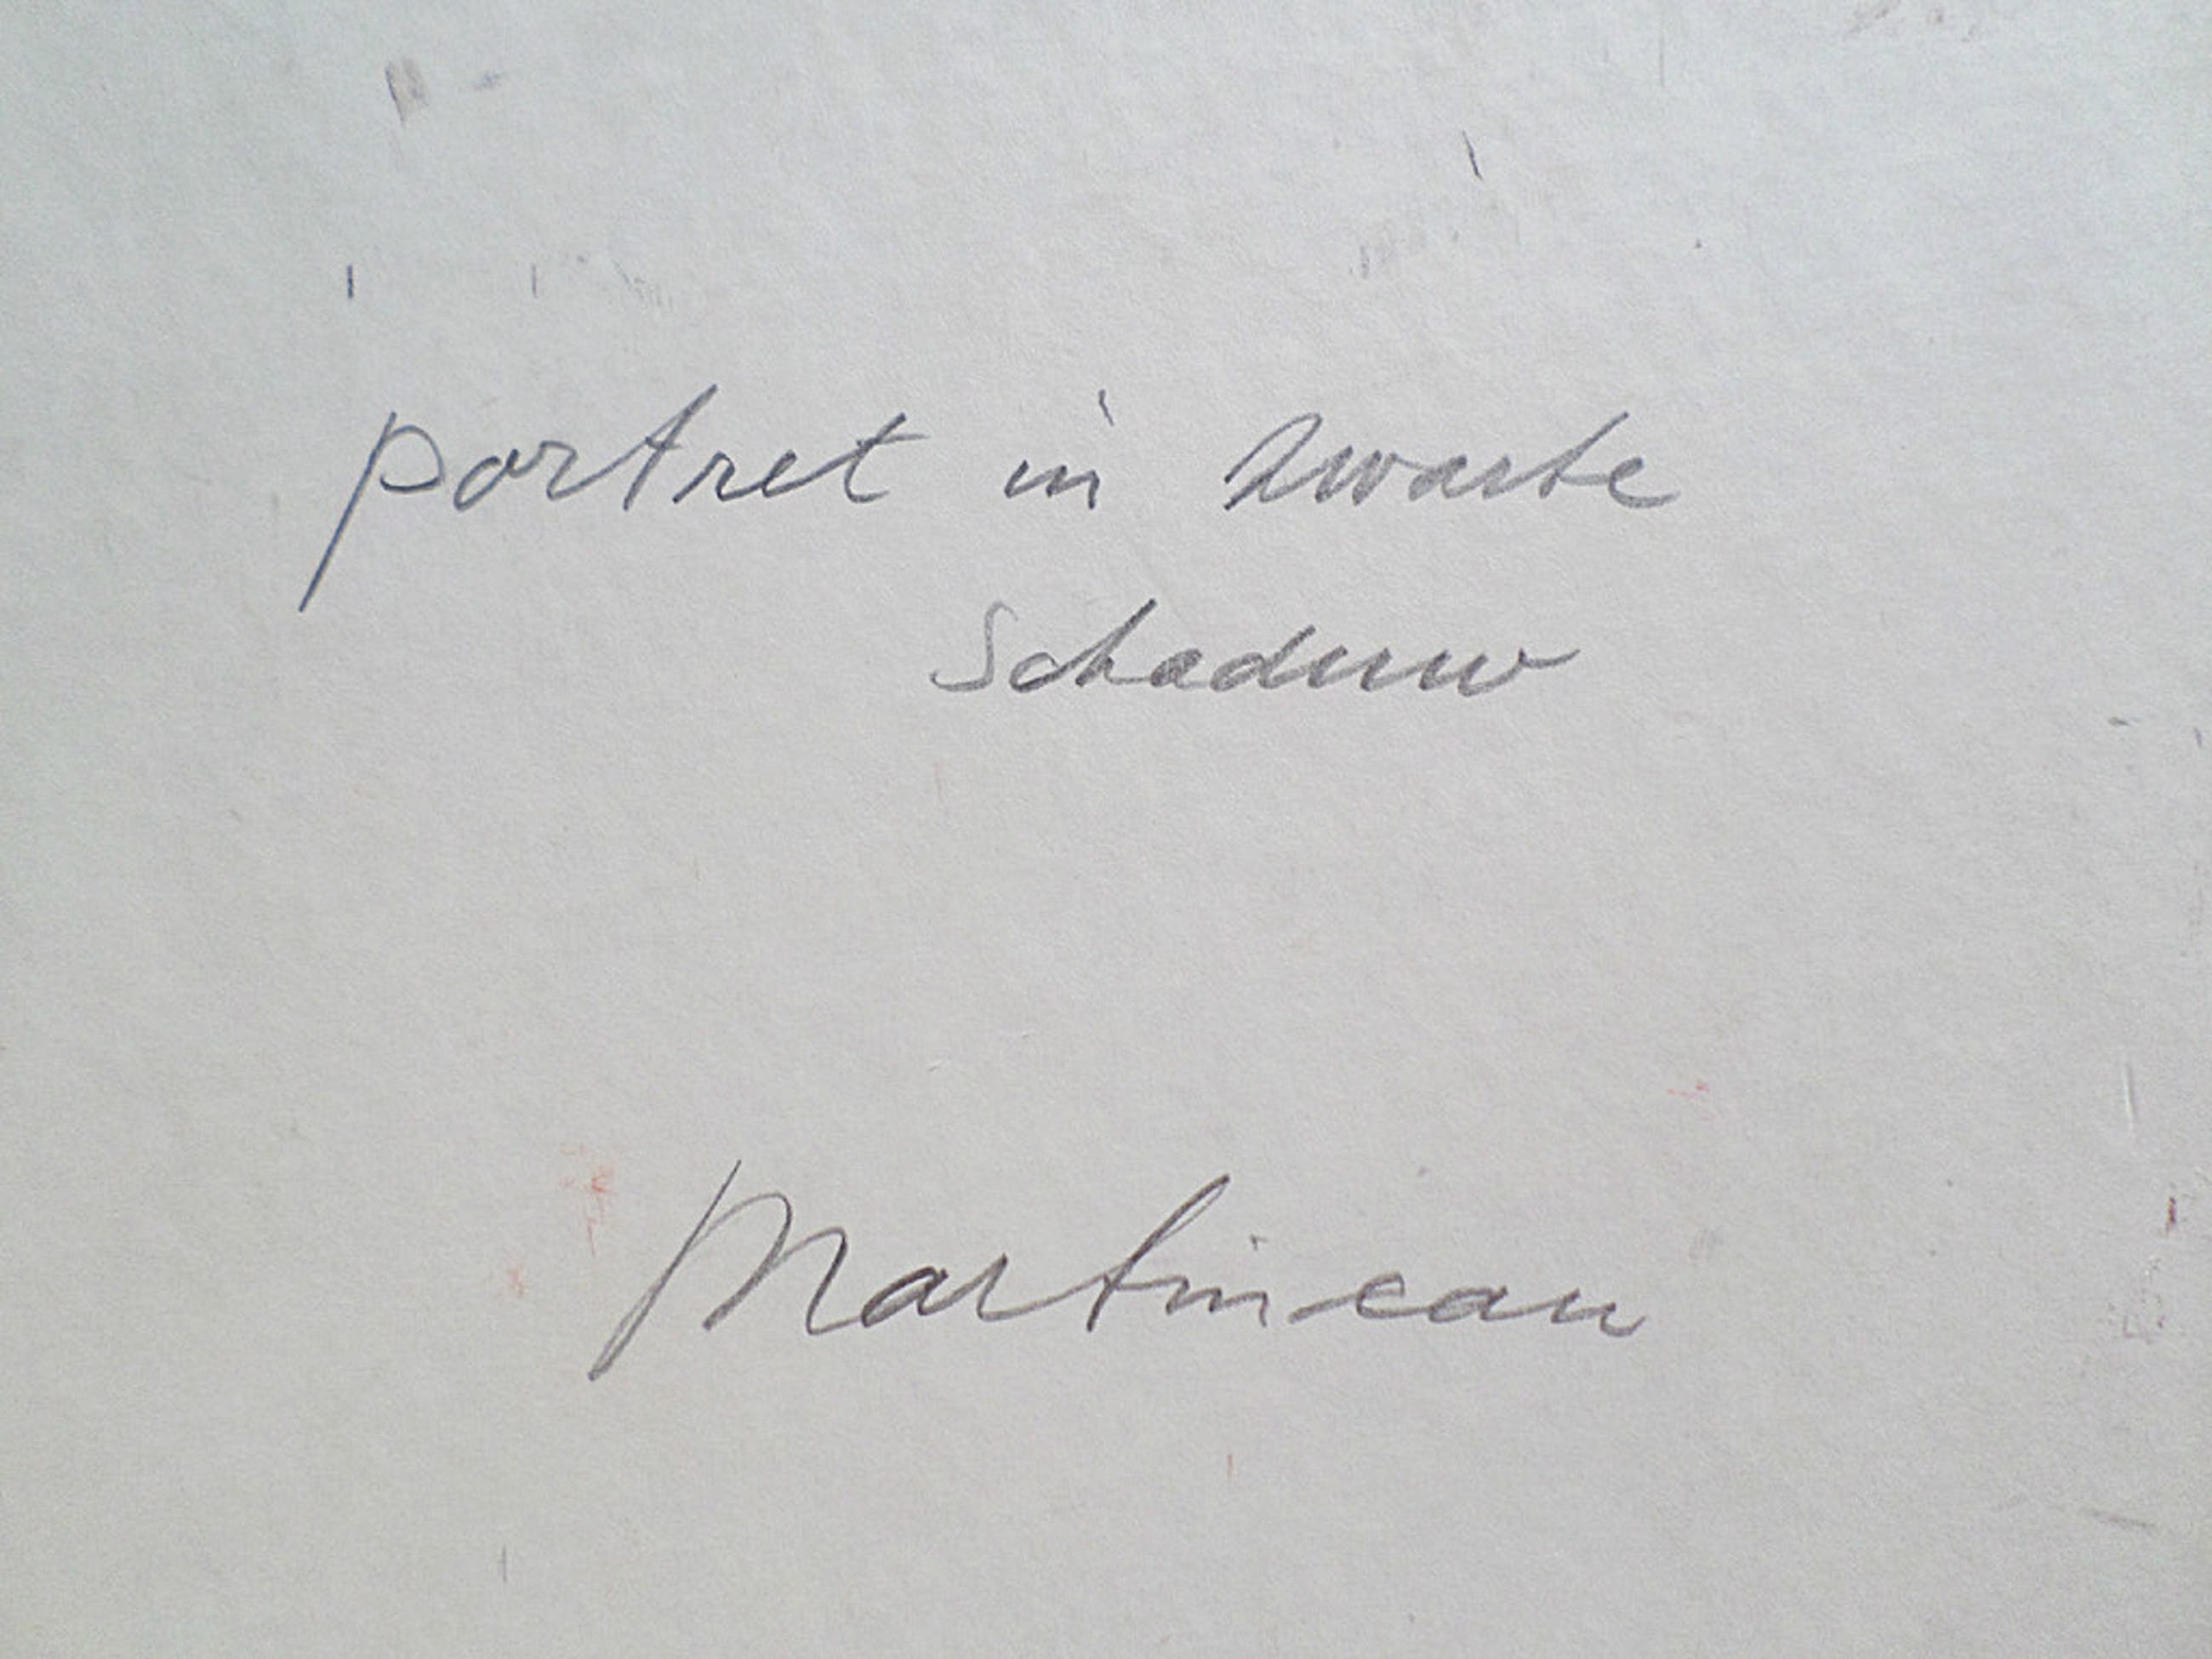 portret in zwarte
schaduw
Martineau